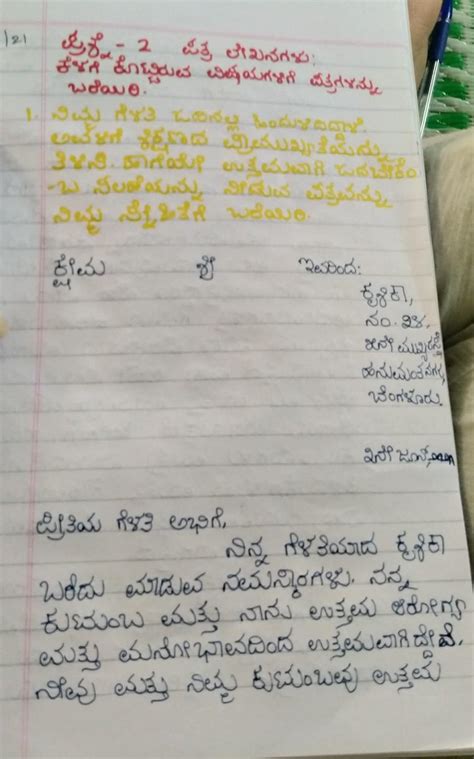 /21
ಪ್ರಶ್ನೆ - 2 ಪತ್ರ ಲೇಖನಗಳು:
ಕೆಳಗೆ ಕೊಟ್ಟಿರುವ ವಿಷಯಗಳಿಗೆ ಪತ್ರಗಳನ್ನು
ಬರೆಯಿರಿ.
1. ನಿಮ್ಮ ಗೆಳತಿ ಓದಿನಲ್ಲಿ ಹಿಂದುಳಿದಿದ್ದಾಳೆ.
ಅವಳಿಗೆ ಶಿಕ್ಷಣದ ಪ್ರಾಮುಖ್ಯತೆಯನ್ನು
ತಿಳಿಸಿ. ಹಾಗೆಯೇ ಉತ್ತಮವಾಗಿ ಓದಬೇಕೆಂ
-ಬ ಸಲಹೆಯನ್ನು ನೀಡುವ ಪತ್ರವನ್ನು
ನಿಮ್ಮ ಸ್ನೇಹಿತೆಗೆ ಬರೆಯಿರಿ.
ಕ್ಷೇಮ ಶ್ರೀ ಇವರಿಂದ:
ಕೃಶಿಕಾ,
ನಂ. ೨೪.
ಹನುಮಂತನಗರ,
ಬೆಂಗಳೂರು.
ಪ್ರೀತಿಯ ಗೆಳತಿ ಅಭಿಗೆ,
ನಿನ್ನ ಗೆಳತಿಯಾದ ಕೃಶಿಕಾ
ಬರೆದು ಮಾಡುವ ನಮಸ್ಕಾರಗಳು. ನನ್ನ
ಕುಟುಂಬ ಮತ್ತು ನಾನು ಉತ್ತಮ ಆರೋಗ್ಯ
ಮತ್ತು ಮನೋಭಾವದಿಂದ ಉತ್ತಮವಾಗಿದ್ದೇವೆ.
ನೀವು ಮತ್ತು ನಿಮ್ಮ ಕುಟುಂಬವು ಉತ್ತಮ